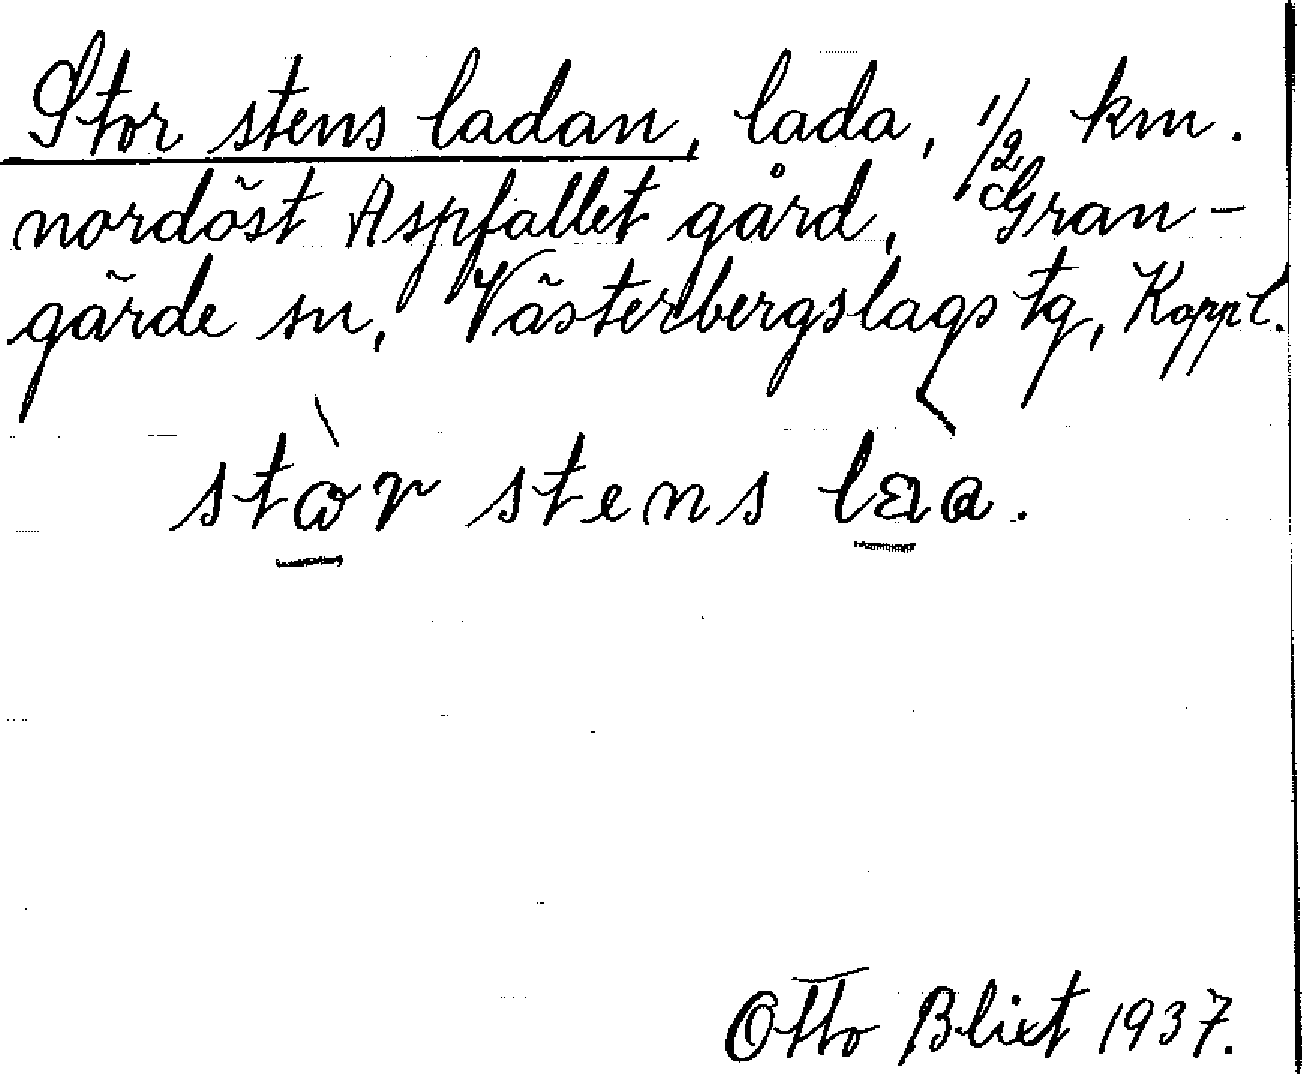 Stor stens ladan, lada, 1/2 km.
nordöst Aspfallet gård, Gran-
gärde sn, Västerbergslags tg, Koppl.
stòr stens
Otto Blixt 1937.